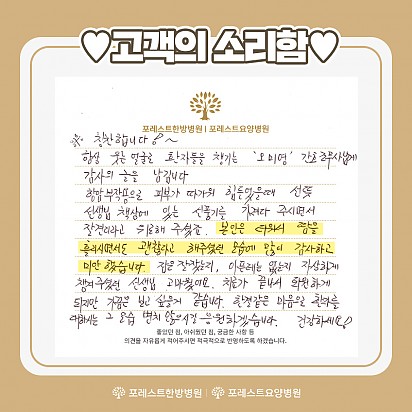 ♥고객의 소리함♥
포레스트한방병원 | 포레스트요양병원
칭찬합니다 ~
항상 웃는 얼굴로 환자들을 챙기는 '오미영' 간호조무사님께
감사의 글을 남깁니다
항암 부작용으로 피부가 따가워 힘들었을때 선뜻
선생님 책상에 있는 선풍기를 가져다 주시면서
잘견디라고 위로해 주셨죠. 본인은 더워서 땀을
흘리시면서도 괜찮다고 해주셨던 모습에 많이 감사하고
미안했습니다. 잠은 잘잤는지, 아픈데는 없는지 자상하게
챙겨주셨던 선생님 고마웠어요. 치료가 끝나서 퇴원하게
되지만 가끔은 보고 싶을거 같습니다. 한결같은 마음으로 환자를
대하는 그 모습 변치 않으시길 응원하겠습니다. 건강하세요
좋았던 점, 아쉬웠던 점, 궁금한 사항 등
의견을 자유롭게 적어주시면 적극적으로 반영하도록 하겠습니다.
포레스트한방병원 | 포레스트요양병원